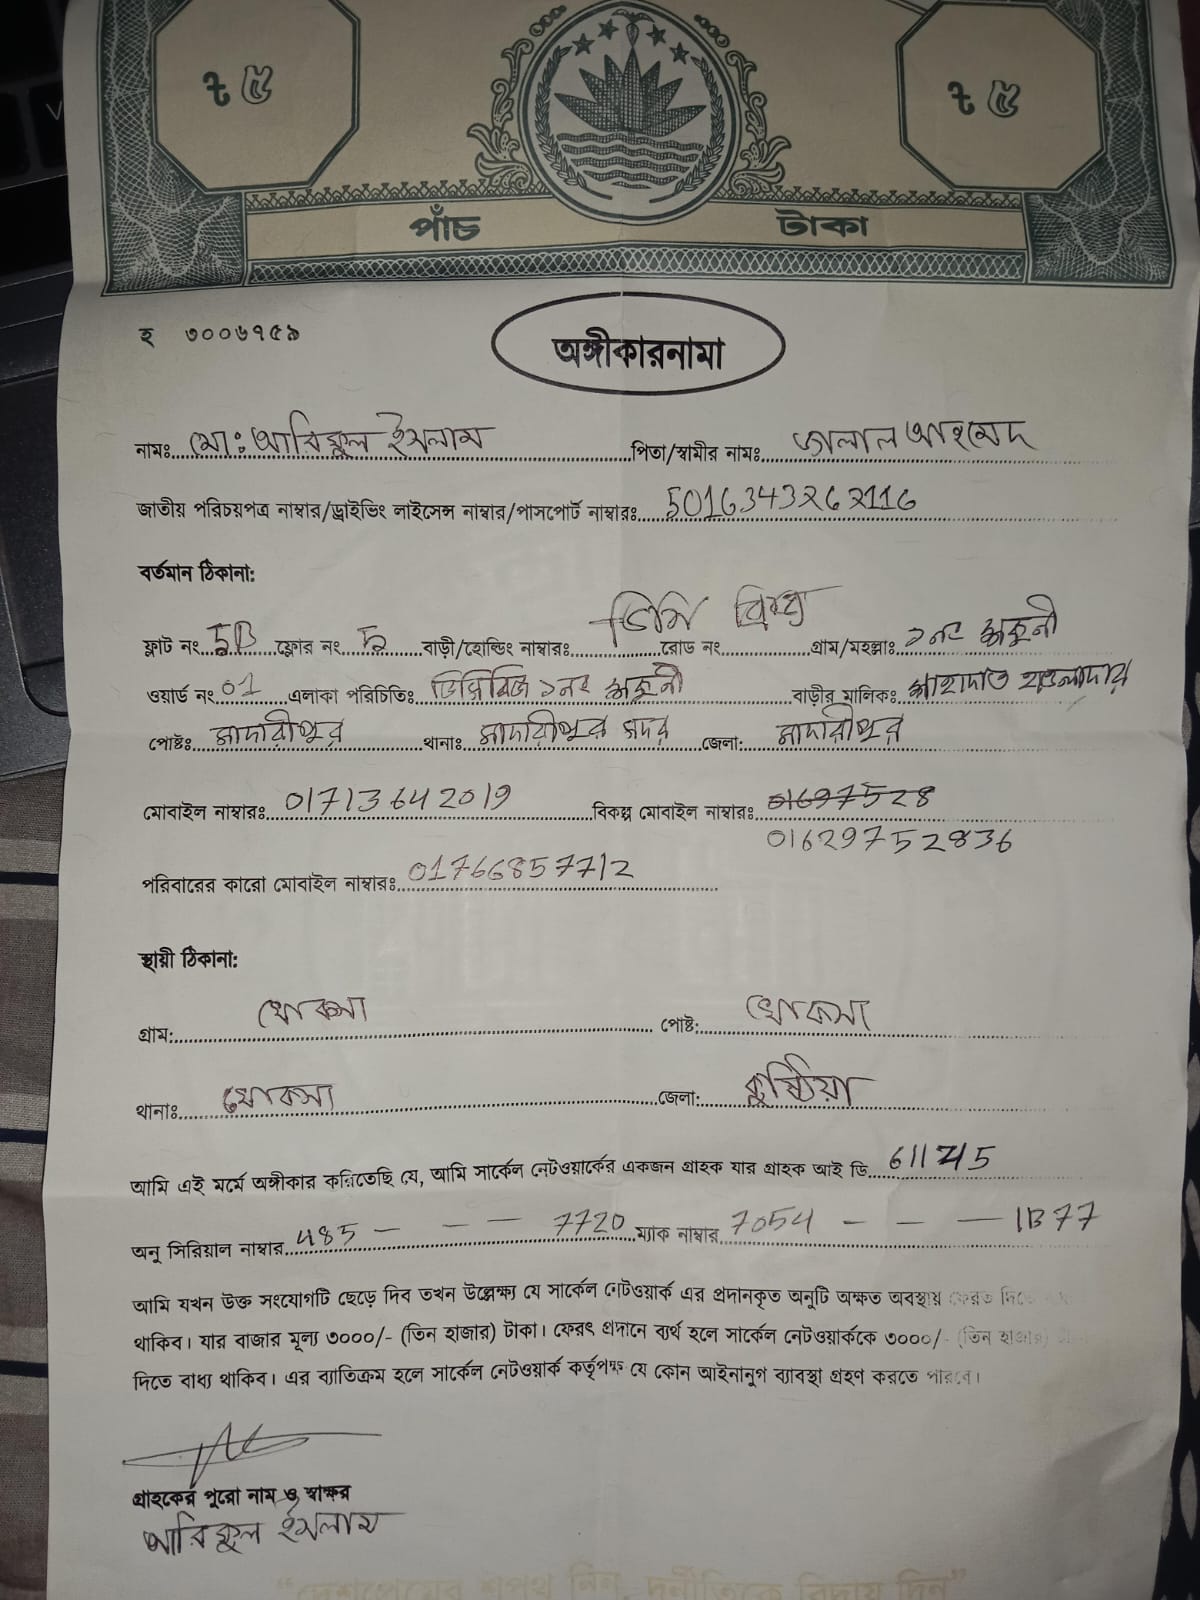 ৳ ৫ ৳ ৫
পাঁচ টাকা
হ ৩০০৬৭৫৯
অঙ্গীকারনামা
নামঃ মোঃ আরিফুল ইসলাম পিতা/স্বামীর নামঃ জালাল আহমেদ
জাতীয় পরিচয়পত্র নাম্বার/ড্রাইভিং লাইসেন্স নাম্বার/পাসপোর্ট নাম্বারঃ 5016343262116
বর্তমান ঠিকানা:
ফ্লাট নং 5B ফ্লোর নং 5 বাড়ী/হোল্ডিং নাম্বারঃ ডিসি ব্রিজ রোড নং গ্রাম/মহল্লাঃ ১নং শকুনী
ওয়ার্ড নং 01 এলাকা পরিচিতিঃ ডিসিব্রিজ ১নং শকুনী বাড়ীর মালিকঃ শাহাদাত হাওলাদার
পোষ্টঃ মাদারীপুর থানাঃ মাদারীপুর সদর জেলা: মাদারীপুর
মোবাইল নাম্বারঃ 01713642019 বিকল্প মোবাইল নাম্বারঃ 01697528
01629752836
পরিবারের কারো মোবাইল নাম্বারঃ 01766857712
স্থায়ী ঠিকানা:
গ্রাম: খোকসা পোষ্ট: খোকসা
থানাঃ খোকসা জেলা: কুষ্ঠিয়া
আমি এই মর্মে অঙ্গীকার করিতেছি যে, আমি সার্কেল নেটওয়ার্কের একজন গ্রাহক যার গ্রাহক আই ডি 611745
অনু সিরিয়াল নাম্বার 485 - - - 7720 ম্যাক নাম্বার 7054 - - - 1B77
আমি যখন উক্ত সংযোগটি ছেড়ে দিব তখন উল্লেক্ষ্য যে সার্কেল নেটওয়ার্ক এর প্রদানকৃত অনুটি অক্ষত অবস্থায় ফেরত দিতে
থাকিব। যার বাজার মূল্য ৩০০০/- (তিন হাজার) টাকা। ফেরৎ প্রদানে ব্যর্থ হলে সার্কেল নেটওয়ার্ককে ৩০০০/- (তিন হাজার)
দিতে বাধ্য থাকিব। এর ব্যাতিক্রম হলে সার্কেল নেটওয়ার্ক কর্তৃপক্ষ যে কোন আইনানুগ ব্যাবস্থা গ্রহণ করতে পারবে।
গ্রাহকের পুরো নাম ও স্বাক্ষর
আরিফুল ইসলাম
“দেশপ্রেমের শপথ নিন, দুর্নীতিকে বিদায় দিন”